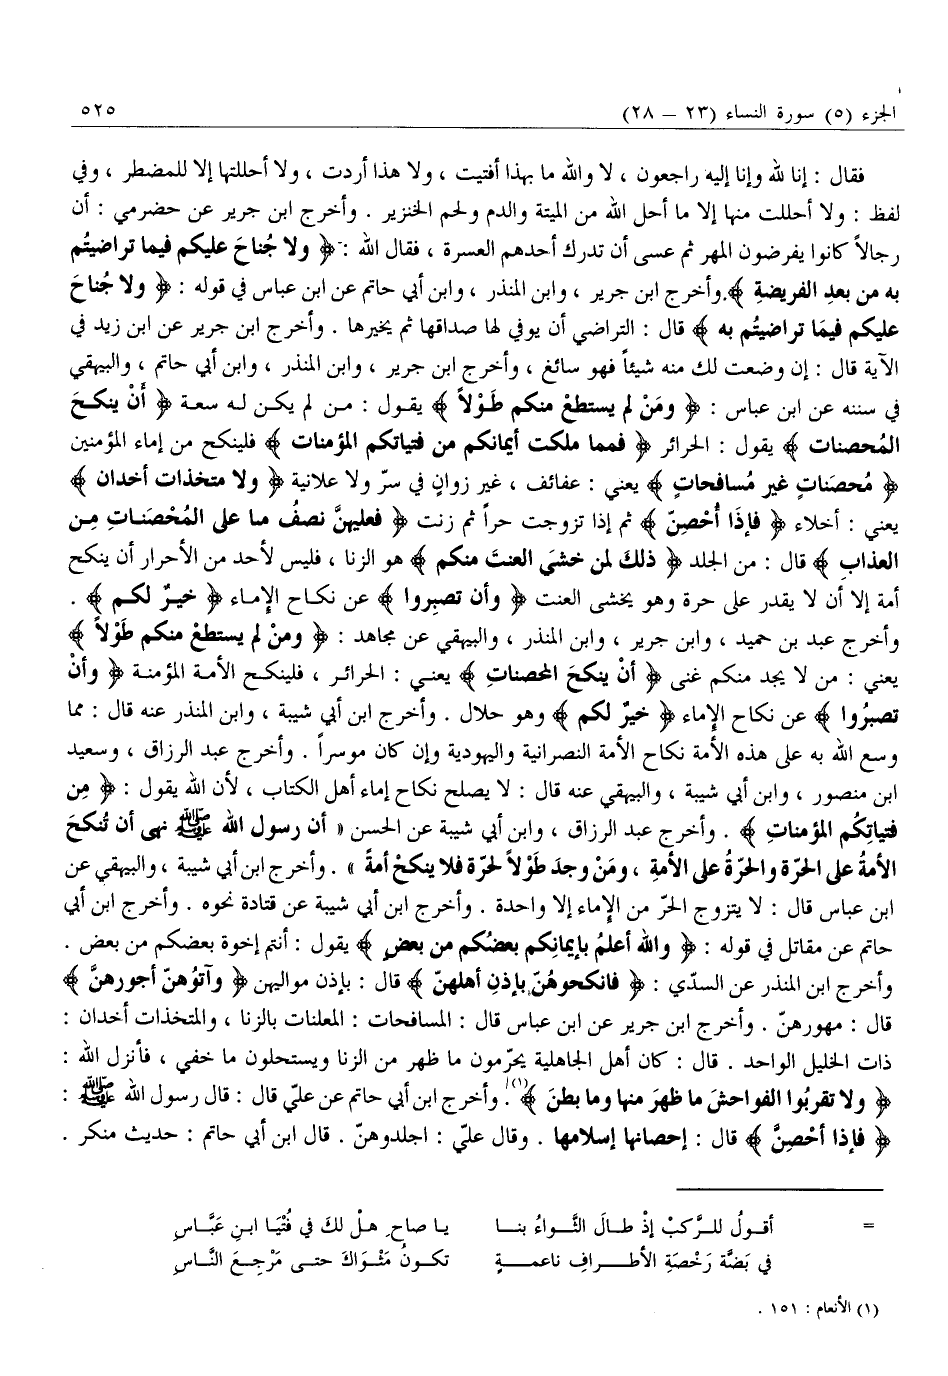 الجزء (٥) سورة النساء (٢٣ – ٢٨) ٥٢٥
فقال : إنا لله وإنا إليه راجعون ، لا والله ما بهذا أفتيت ، ولا هذا أردت ، ولا أحللتها إلا للمضطر ، وفي
لفظ : ولا أحللت منها إلا ما أحل الله من الميتة والدم ولحم الخنزير . وأخرج ابن جرير عن حضرمي : أن
رجالاً كانوا يفرضون المهر ثم عسى أن تدرك أحدهم العسرة ، فقال الله : ﴿ ولا جُناحَ عليكم فيما تراضيتُم
به من بعدِ الفريضة ﴾ . وأخرج ابن جرير ، وابن المنذر ، وابن أبي حاتم عن ابن عباس في قوله : ﴿ ولا جُناحَ
عليكم فيمَا تراضيتُم به ﴾ قال : التراضي أن يوفي لها صداقها ثم يخيرها . وأخرج ابن جرير عن ابن زيد في
الآية قال : إن وضعت لك منه شيئاً فهو سائغ ، وأخرج ابن جرير ، وابن المنذر ، وابن أبي حاتم ، والبيهقي
في سننه عن ابن عباس : ﴿ ومَنْ لم يستطعْ منكم طَوْلاً ﴾ يقول : من لم يكن له سعة ﴿ أَنْ ينكحَ
المُحصنات ﴾ يقول : الحرائر ﴿ فمما ملكت أيمانكم من فتياتكم المؤمنات ﴾ فلينكح من إماء المؤمنين
﴿ مُحصَناتٍ غير مُسافحاتٍ ﴾ يعني : عفائف ، غير زوانٍ في سرّ ولا علانية ﴿ ولا متخذات أخدان ﴾
يعني : أخلاء ﴿ فإذَا أُحْصِنّ ﴾ ثم إذا تزوجت حراً ثم زنت ﴿ فعليهنَّ نصفُ ما على المُحْصَناتِ مِن
العذابِ ﴾ قال : من الجلد ﴿ ذلكَ لمن خشيَ العنتَ منكم ﴾ هو الزنا ، فليس لأحد من الأحرار أن ينكح
أمة إلا أن لا يقدر على حرة وهو يخشى العنت ﴿ وأن تصبِروا ﴾ عن نكاح الإماء ﴿ خيرٌ لكم ﴾ .
وأخرج عبد بن حميد ، وابن جرير ، وابن المنذر ، والبيهقي عن مجاهد : ﴿ ومنْ لم يستطعْ منكم طَوْلاً ﴾
يعني : من لا يجد منكم غنى ﴿ أنْ ينكحَ المحصناتِ ﴾ يعني : الحرائر ، فلينكح الأمة المؤمنة ﴿ وأنْ
تصبُروا ﴾ عن نكاح الإماء ﴿ خيرٌ لكم ﴾ وهو حلال . وأخرج ابن أبي شيبة ، وابن المنذر عنه قال : مما
وسع الله به على هذه الأمة نكاح الأمة النصرانية واليهودية وإن كان موسراً . وأخرج عبد الرزاق ، وسعيد
ابن منصور ، وابن أبي شيبة ، والبيهقي عنه قال : لا يصلح نكاح إماء أهل الكتاب ، لأن الله يقول : ﴿ مِن
فتياتِكُم المؤمناتِ ﴾ . وأخرج عبد الرزاق ، وابن أبي شيبة عن الحسن « أن رسول الله ﷺ نهى أن تُنكحَ
الأمةُ على الحرّة والحرّةُ على الأمةِ ، ومَنْ وجد طَوْلاً لحرّة فلا ينكحْ أمةً » . وأخرج ابن أبي شيبة ، والبيهقي عن
ابن عباس قال : لا يتزوج الحرّ من الإماء إلا واحدة . وأخرج ابن أبي شيبة عن قتادة نحوه . وأخرج ابن أبي
حاتم عن مقاتل في قوله : ﴿ والله أعلمُ بإيمانِكم بعضُكم من بعضٍ ﴾ يقول : أنتم إخوة بعضكم من بعض .
وأخرج ابن المنذر عن السدّي : ﴿ فانكحوهُنّ بإذنِ أهلهنّ ﴾ قال : بإذن مواليهن ﴿ وآتوُهنّ أجورهنَّ ﴾
قال : مهورهنّ . وأخرج ابن جرير عن ابن عباس قال : المسافحات : المعلنات بالزنا ، والمتخذات أخدان :
ذات الخليل الواحد . قال : كان أهل الجاهلية يحرّمون ما ظهر من الزنا ويستحلون ما خفي ، فأنزل الله :
﴿ ولا تقربُوا الفواحشَ ما ظهرَ منها وما بطنَ ﴾(١) . وأخرج ابن أبي حاتم عن عليّ قال : قال رسول الله ﷺ :
﴿ فإذا أحْصِنَّ ﴾ قال : إحصانها إسلامها . وقال عليّ : اجلدوهنّ . قال ابن أبي حاتم : حديث منكر .
= أقولُ للرَّكبْ إذْ طالَ الثَّواءُ بنا يا صاحِ هلْ لكَ في فُتْيَا ابنِ عَبَّاسِ
في بَضَّة رَخْصَةِ الأطرافِ ناعمةٍ تكونُ مَثْوَاكَ حتى مَرْجِعَ النَّاسِ
(١) الأنعام : ١٥١ .